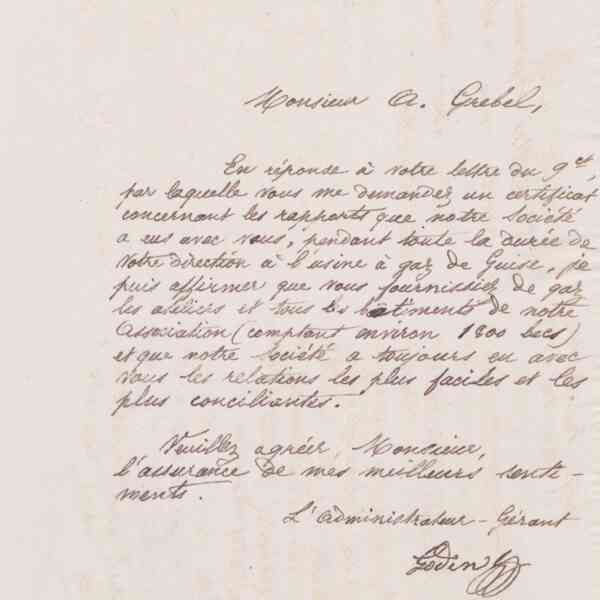 Monsieur A. Grebel,
En réponse à votre lettre du 9 ct,
par laquelle vous me demandez un certificat
concernant les rapports que notre Société
a eus avec vous, pendant toute la durée de
votre direction à l'usine à gaz de Guise, je
puis affirmer que vous fournissiez de gaz
les ateliers et tous les bâtiments de notre
Association (comptant environ 1800 becs)
et que notre Société a toujours eu avec
vous les relations les plus faciles et les
plus conciliantes.
Veuillez agréer, Monsieur,
l'assurance de mes meilleurs senti-
ments.
L'Administrateur-Gérant
Godin